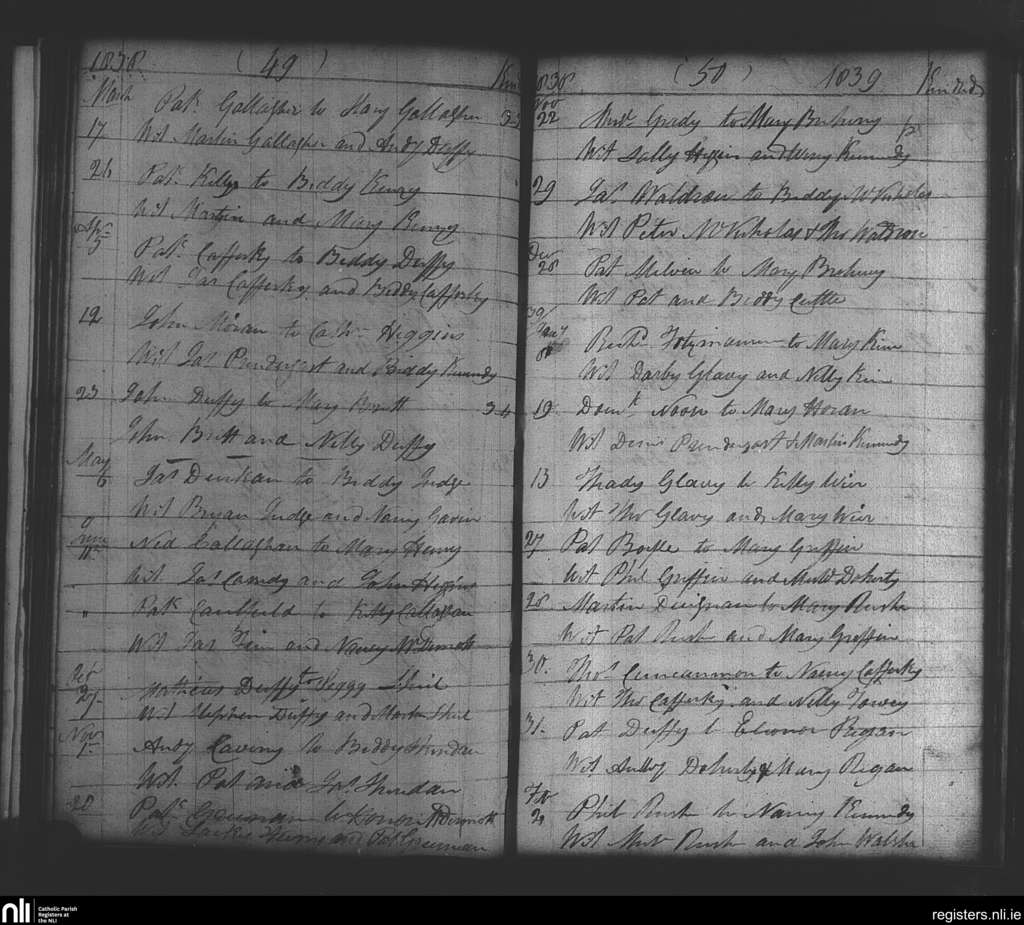 1838 (49)
March Pat. Gallagher to Mary Gallagher 33
17 Wit Martin Gallagher and Andy Duffy
26 Pat. Kelly to Biddy Kenny
Wit Martin and Mary Kenny
Apr 5 Patk. Cafferky to Biddy Duffy
Wit Jas Cafferky and Biddy Cafferky
12 John Moran to Cath Higgins
Wit Jas Prendergast and Biddy Kennedy
23 John Duffy to Mary Brett 34
John Brett and Nelly Duffy
May 6 Jas Dunkan to Biddy Judge
Wit Bryan Judge and Nancy Gavin
June Ned Callaghan to Mary Henry
Wit Jas and John Higgins
" Patk Caulfield to Kitty Callaghan
Wit Jas and Nancy McDermott
27 Matheus Duffy to Peggy Shiel
Wit Stephen Duffy and Martin Shiel
Nov 1 Andy to Biddy Sheridan
Wit Pat and Jas Sheridan
20 Patk to Honor McDermott
Wit and Pat
1838 (50) 1839 Kindred
Nov 22 Grady to Mary
Wit Sally Higgin and Kennedy
29 Jas Waldron to Biddy McNicholas
Wit Peter McNicholas & Thos Waldron
Dec 28 Pat to Mary
Wit Pat and Biddy Cuttle
39/ Jany Fitzmaurice to Mary
Wit Darby Glavy and Nelly
19 Domk. Noon to Mary Horan
Wit Denis Prendergast & Martin Kennedy
13 Thady Glavy to Kitty Wier
Wit Thos Glavy and Mary Wier
27 Pat to Mary Griffin
Wit Phil Griffin and Doherty
28 Martin Deignan to Mary Rush
Wit Pat Rush and Mary Griffin
30. Thos Cunnanmon to Nancy Cafferky
Wit Thos Cafferky and Nelly Towey
31. Pat Duffy to Eleonor Regan
Wit Doherty & Mary Regan
Feb 2 Phil Rush to Nancy Kennedy
Wit Rush and John Walshe
nli Catholic Parish Registers at the NLI
registers.nli.ie